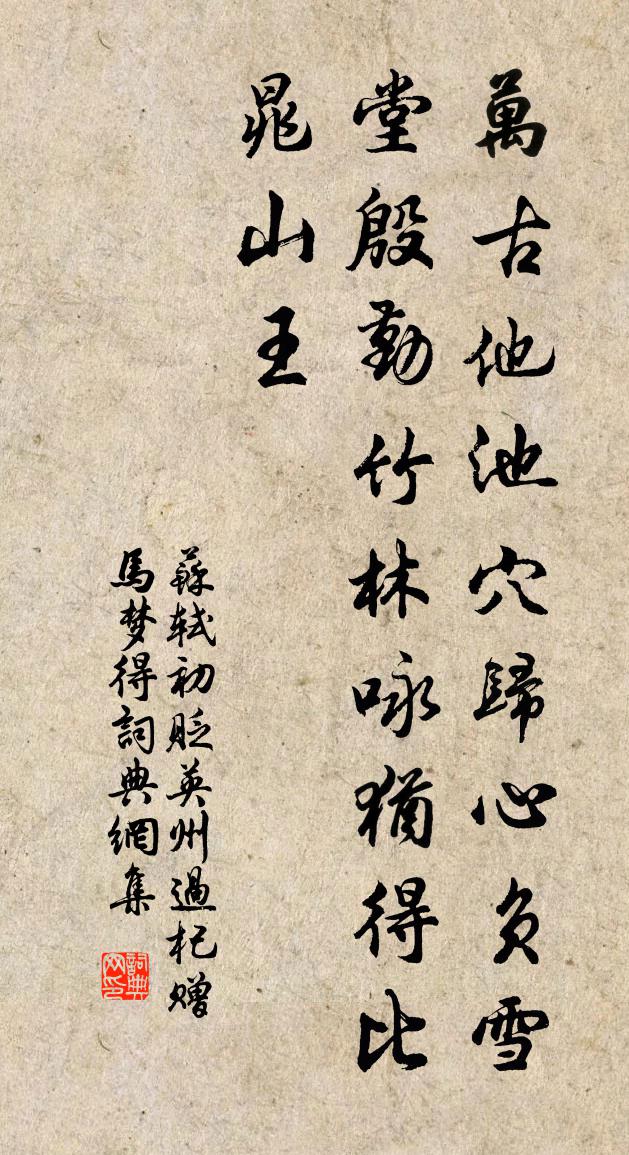 萬古他池穴歸心負雪
堂殷勤竹林咏猶得比
晁山王
蘇軾初貶英州過杞贈
馬梦得詞典網集
詞典
网印